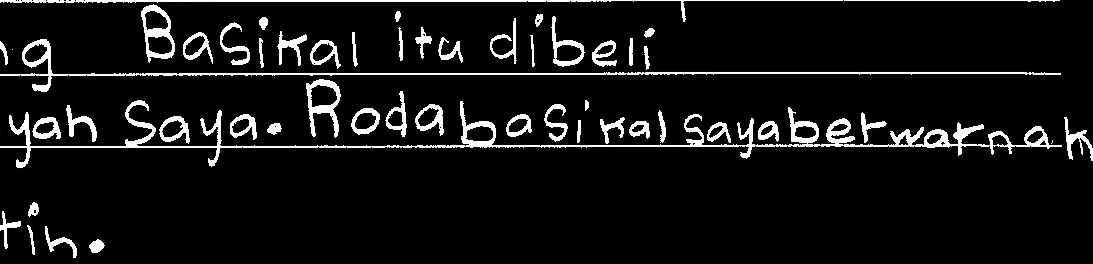 ng Basikal itu dibeli
yah saya. Roda basikal saya berwarna k
tih.